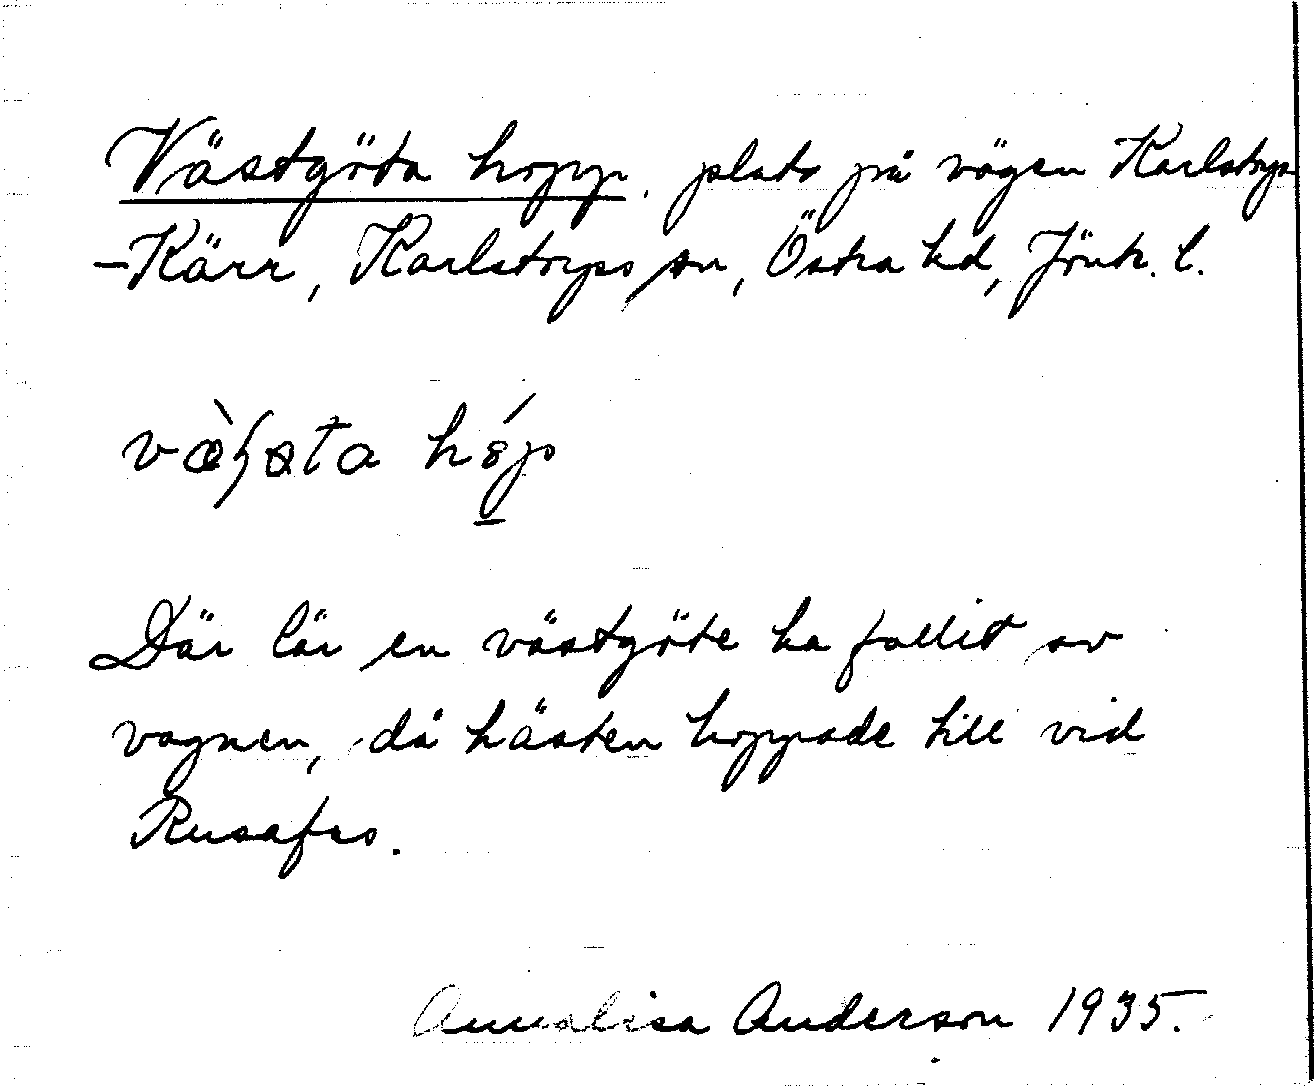 Västgöta hopp, plats på vägen Karlstorp
-Kärr, Karlstorps sn, Östra hd, Jönk. l.
Där lär en västgöte ha fallit av
vagnen, då hästen hoppade till vid
Annalisa Anderson 1935.